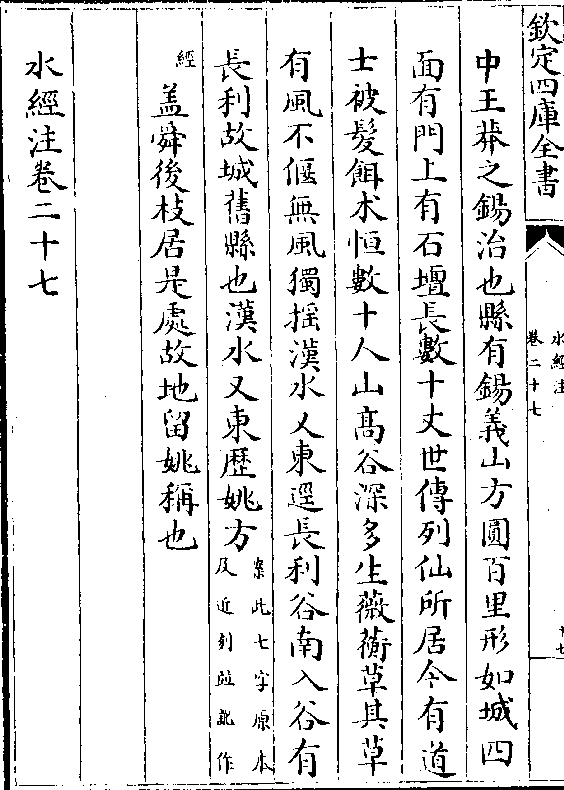 欽定四庫全書
水經注
卷二十七
十七
中王莽之鍚治也縣有鍚義山方圓百里形如城四
面有門上有石壇長數十丈世傳列仙所居今有道
士被髮餌术恒數十人山髙谷深多生薇蘅草其草
有風不偃無風獨揺漢水又東逕長利谷南入谷有
長利故城舊縣也漢水又東歴姚方案此七字原本及近刻並訛作
經盖舜後枝居是處故地留姚稱也
水經注卷二十七